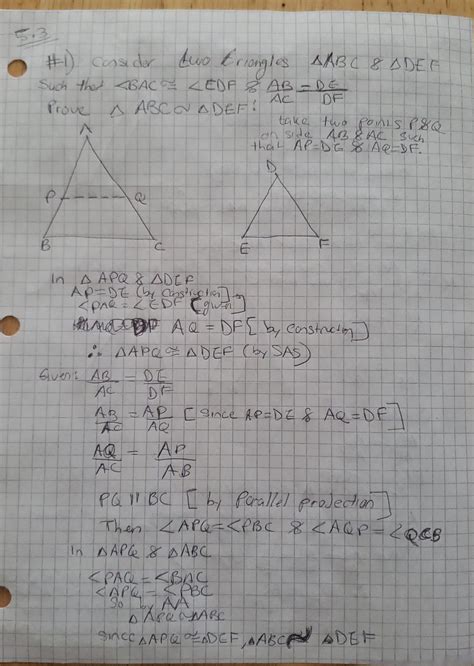 5.3
#1) Consider two triangles △ABC & △DEF
Such that <BAC ≅ <EDF & AB/AC = DE/DF
Prove △ABC ~ △DEF:
take two points P&Q
on side AB & AC such
that AP=DE & AQ=DF.
A
P Q
B C
D
E F
In △APQ & △DEF
AP=DE (by construction]
<PAQ = < EDF [given]
AQ = DF [by construction]
∴ △APQ ≅ △DEF (by SAS)
Given: AB/AC = DE/DF
AB/AC = AP/AQ [Since AP=DE & AQ=DF]
AQ/AC = AP/AB
PQ || BC [by Parallel projection]
Then <APQ=<PBC & <AQP=<QCB
In △APQ & △ABC
<PAQ=<BAC
<APQ=<PBC
So by AA
△APQ~△ABC
Since △APQ≅△DEF, △ABC ~ △DEF